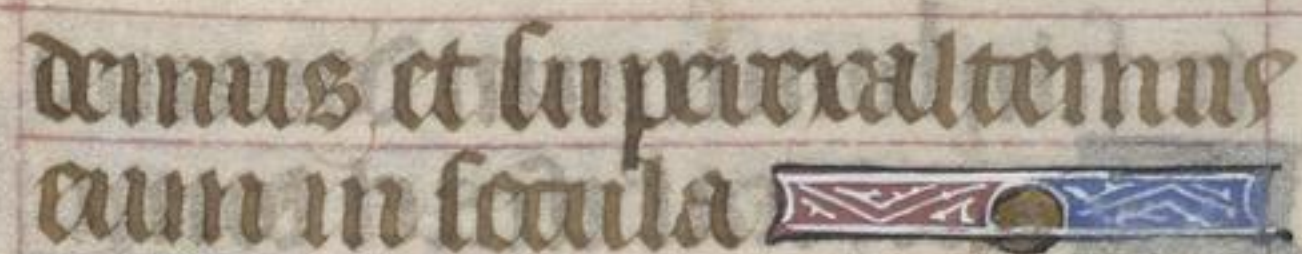 demus et superexaltemus
eum in secula